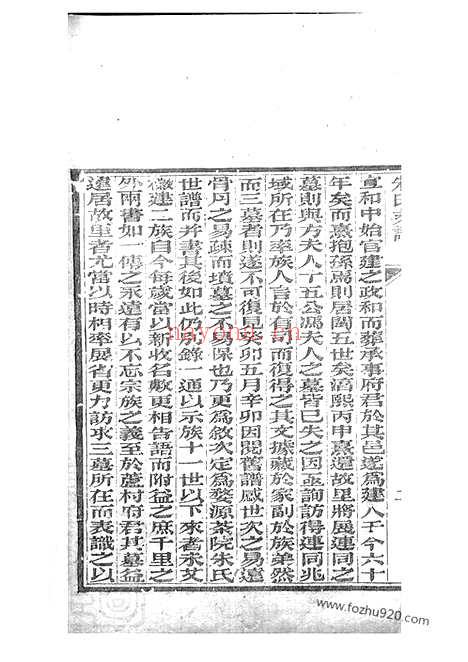 宣和中始官建之政和而葬承事府君於其邑遂爲建人于今六十
年矣而熹抱孫焉則居閩五世矣淳熙丙申熹還故里將展連同之
墓則與方夫人十五公馮夫人之墓皆已失之因亟詢訪得連同兆
域所在乃率族人言於有司而復得之其文據藏於家副於族弟然
而三墓者則遂不可復見癸卯五月辛卯因閱舊譜感世次之易遠
骨肉之易疎而墳墓之不易保也乃更爲敘次定爲婺源茶院朱氏
世譜而并書其後如此仍錄一通以示族十一世以下來者承父
徽建二族自今每歲當以新收名數更相告語而附益之庶千里之
外兩書如一傳之永遠有以不忘宗族之義至於蘆村府君其墓益
遠居故里者尤當以時相率展省更力訪求三墓所在而表識之以
nayong.cn
www.fozhu920.com